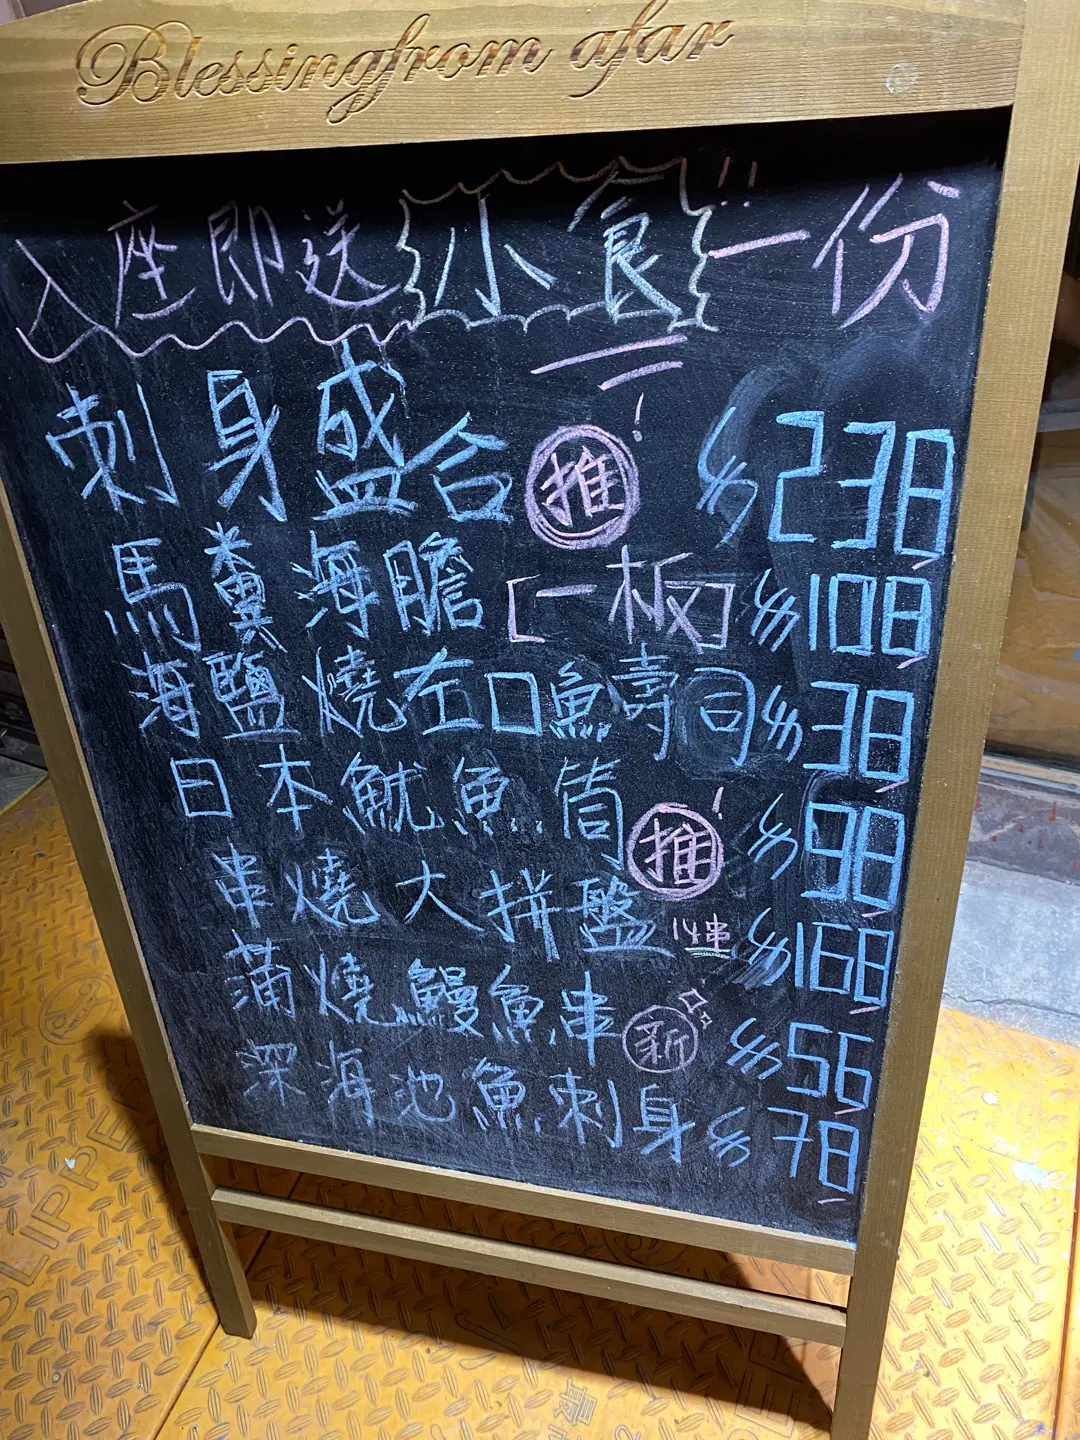 Blessingfrom afar
入座即送小食!!一份
刺身盛合 推! $238
馬糞海膽[一板] $108
海鹽燒左口魚壽司 $38
日本魷魚筒 推! $98
串燒大拼盤 14串 $168
蒲燒鰻魚串 新 $56
深海池魚刺身 $78